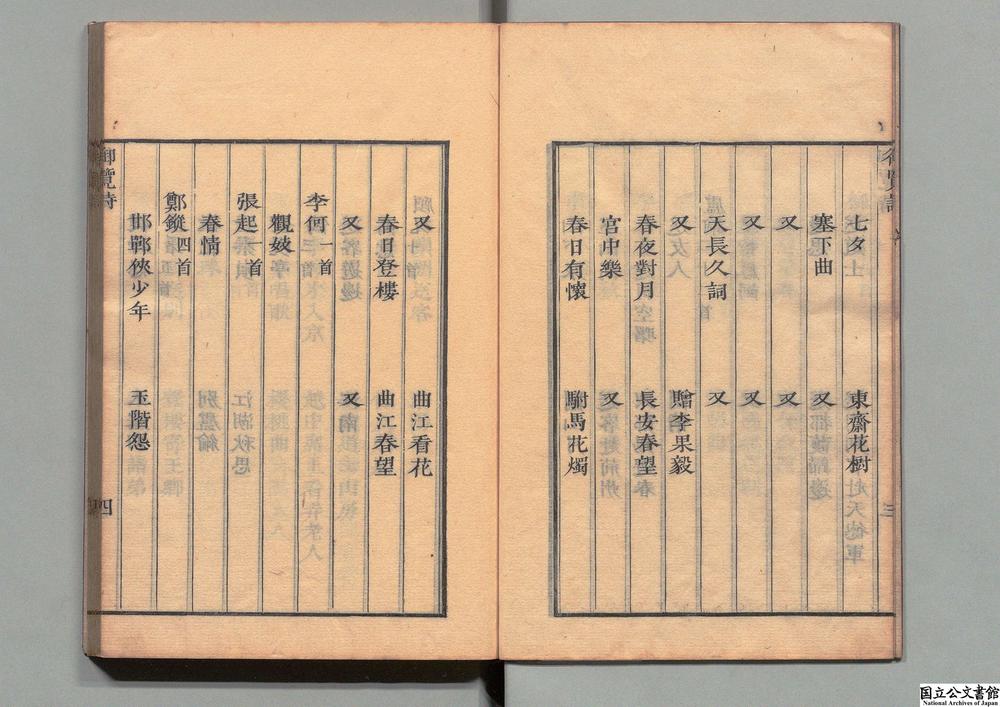 御覽詩 三
七夕 東齋花樹
塞下曲 又
又 又
又 又
天長久詞 又
又 贈李果毅
春夜對月 長安春望
宮中樂
春日有懷 駙馬花燭
又 曲江看花
春日登樓 曲江春望
又 又
李何一首
觀妓
張起一首
春情
鄭鏦四首
邯鄲俠少年 玉階怨
御覽詩 四
国立公文書館
National Archives of Japan